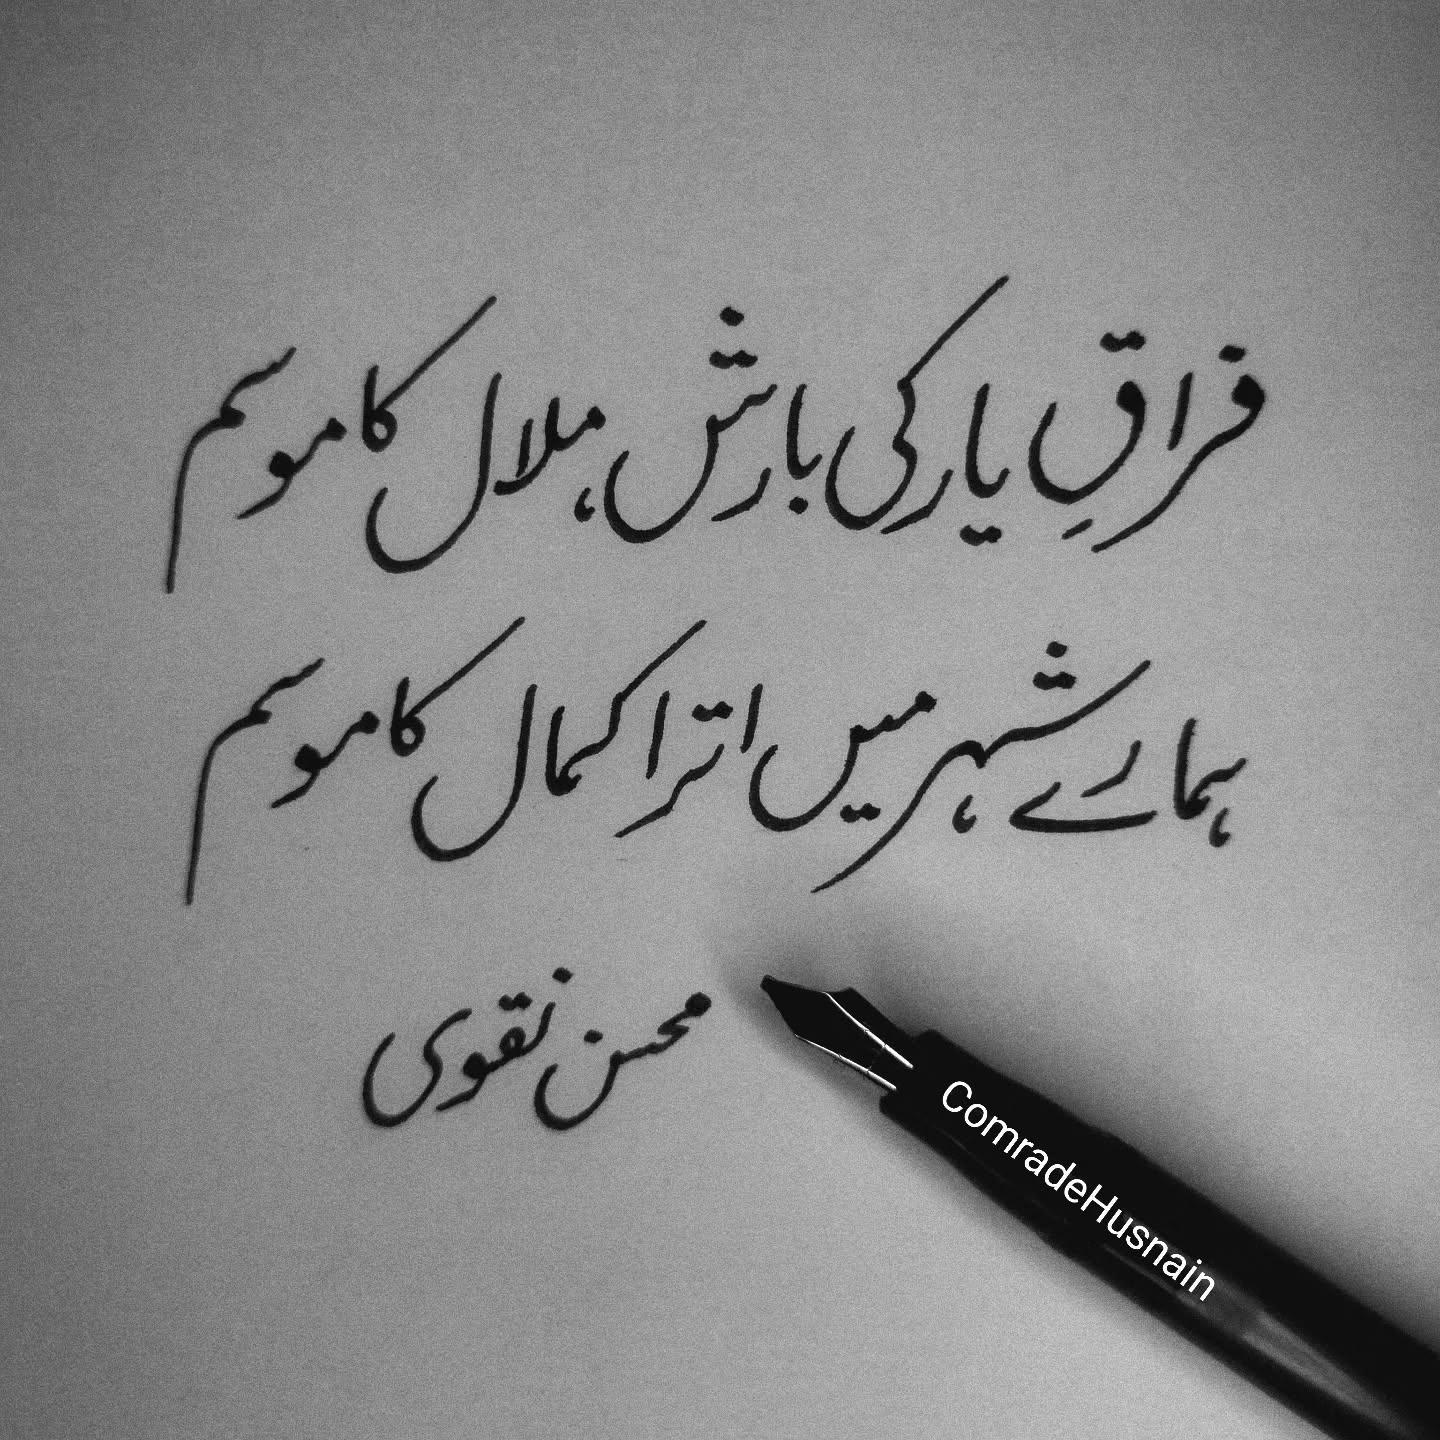 فراقِ یار کی بارش ملال کا موسم
ہمارے شہر میں اترا کمال کا موسم
محسن نقوی
ComradeHusnain